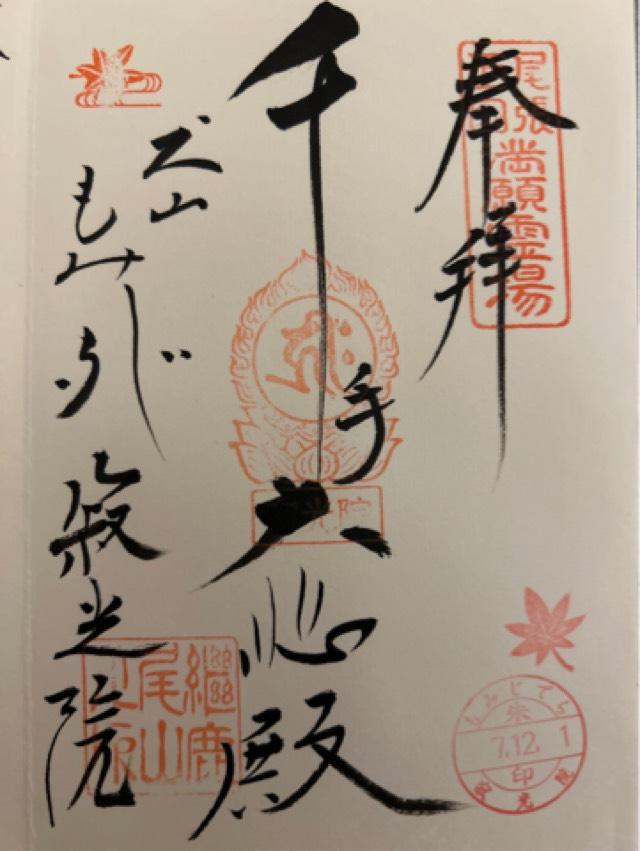 奉拝
尾張
満願霊場
千手大悲殿
犬山
もみじでら
寂光院
継鹿
尾山
光院
もみじでら
朱
7.12.1
印
寂光院